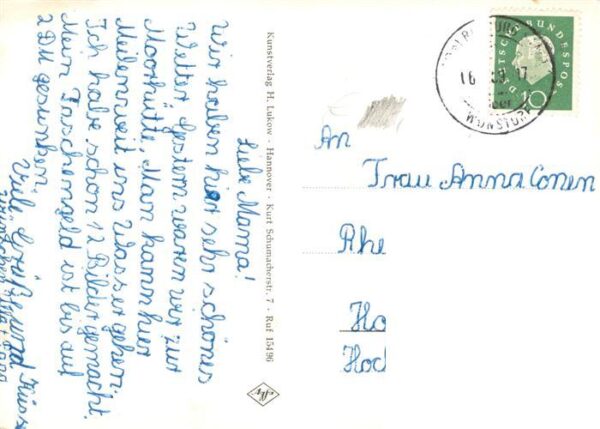 Liebe Mama!
Wir haben hier sehr schönes
Wetter. Gestern waren wir zur
Moorhütte. Man kann hier
Meilenweit ins Wasser gehen.
Ich habe schon 12 Bilder gemacht.
Mein Taschengeld ist bis auf
2 DM gesunken.
Viele Grüße und Küsse
Kunstverlag H. Lukow - Hannover - Kurt Schumacherstr. 7 - Ruf 15496
DEUTSCHE BUNDESPOST
10
16
17
WUNSTORF
An
Frau Anna Conen
Rhe
Ho
Hod